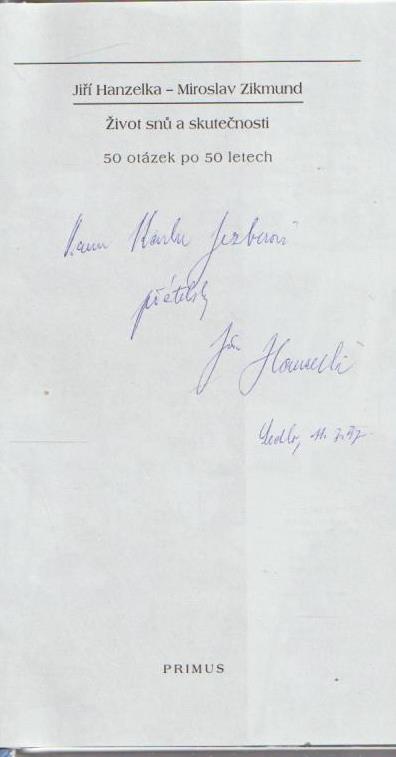 Jiří Hanzelka – Miroslav Zikmund
Život snů a skutečnosti
50 otázek po 50 letech
Panu Karlu
přátelsky
Jiří Hanzelka
PRIMUS